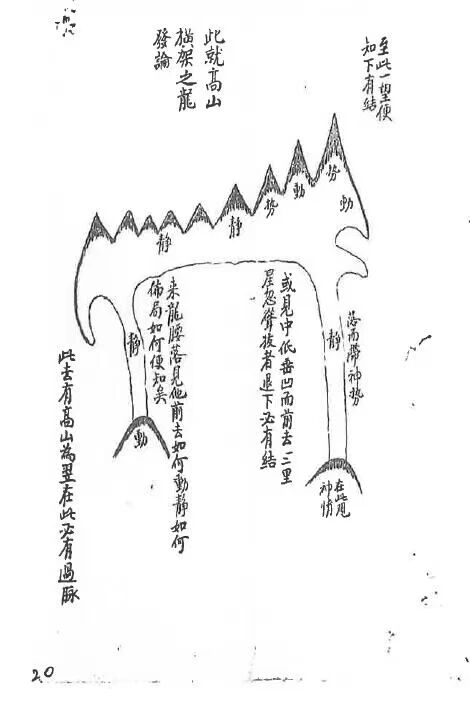 至此一望便
知下有結
此就高山
橫架之龍
發論
勢
動
動
勢
靜
靜
落而帶神勢
靜
在此見
神情
或見中低垂凹而前去二三里
星忽聳拔者退下必有結
來龍腰落見他前去如何動靜如何
佈局如何便知矣
靜
動
此去有高山為翌在此必有過脉
20